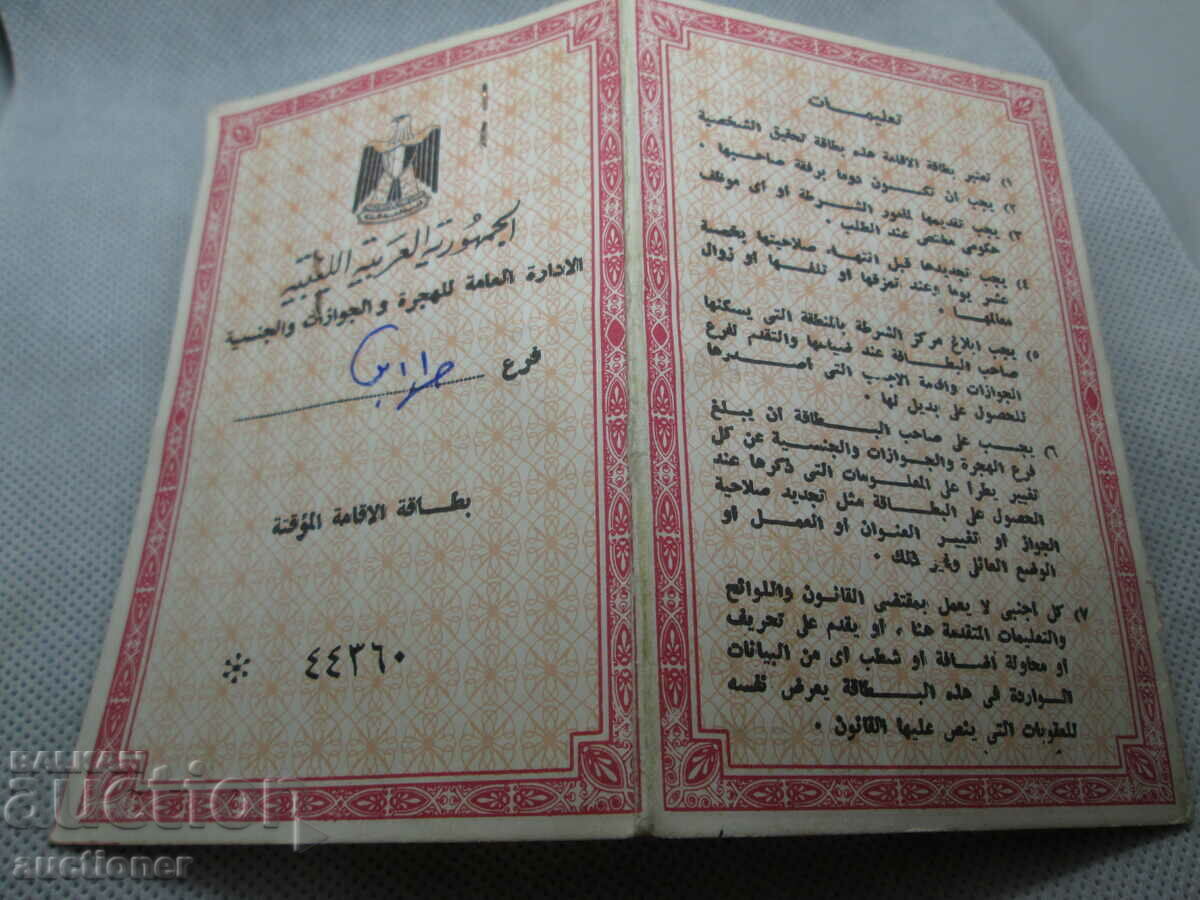 الجمهورية العربية الليبية
الادارة العامة للهجرة و الجوازات والجنسية
فرع طرابلس
بطاقة الاقامة المؤقتة
٤٤٣٦٠ *
تعليمات
١) تعتبر بطاقة الاقامة هذه بطاقة تحقيق الشخصية
٢) يجب ان تكون دوما برفقة صاحبها .
٣) يجب تقديمها لجنود الشرطة او أى موظف
حكومى مختص عند الطلب .
٤) يجب تجديدها قبل انتهاء صلاحيتها بخمسة
عشر يوما وعند تمزقها أو تلفها او زوال
معالمها .
٥) يجب ابلاغ مركز الشرطة بالمنطقة التى يسكنها
صاحب البطاقة عند ضياعها والتقدم لفرع
الجوازات التى أصدرها
للحصول على بديل لها .
٦) يجب على صاحب البطاقة أن يبلغ
فرع الهجرة والجوازات والجنسية عن كل
تغيير يطرأ على المعلومات التى ذكرها عند
الحصول على البطاقة مثل تجديد صلاحية
الجواز أو تغيير العنوان أو العمل أو
الوضع العائلى وغير ذلك .
٧) كل أجنبى لا يعمل بمقتضى القانون واللوائح
والتعليمات المتقدمة هنا ، أو يقدم على تحريف
أو محاولة اضافة أو شطب أى من البيانات
الواردة فى هذه البطاقة يعرض نفسه
للعقوبات التى ينص عليها القانون .
BALKAN
auction
auctioner